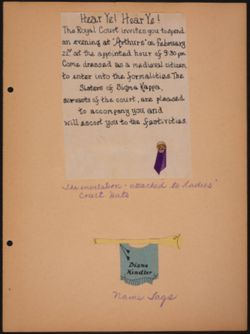 Hear Ye! Hear Ye!
The Royal Court invites you to spend
an evening at "Arthurs" on February
22nd at the appointed hour of 9:30 pm.
Come dressed as a medieval citizen
to enter into the formalities. The
Sisters of Sigma Kappa,
servants of the court, are pleased
to accompany you and
will escort you to the festivities.
The invitation - attached to ladies'
Court Hats
Diane
Kindler
Name Tags